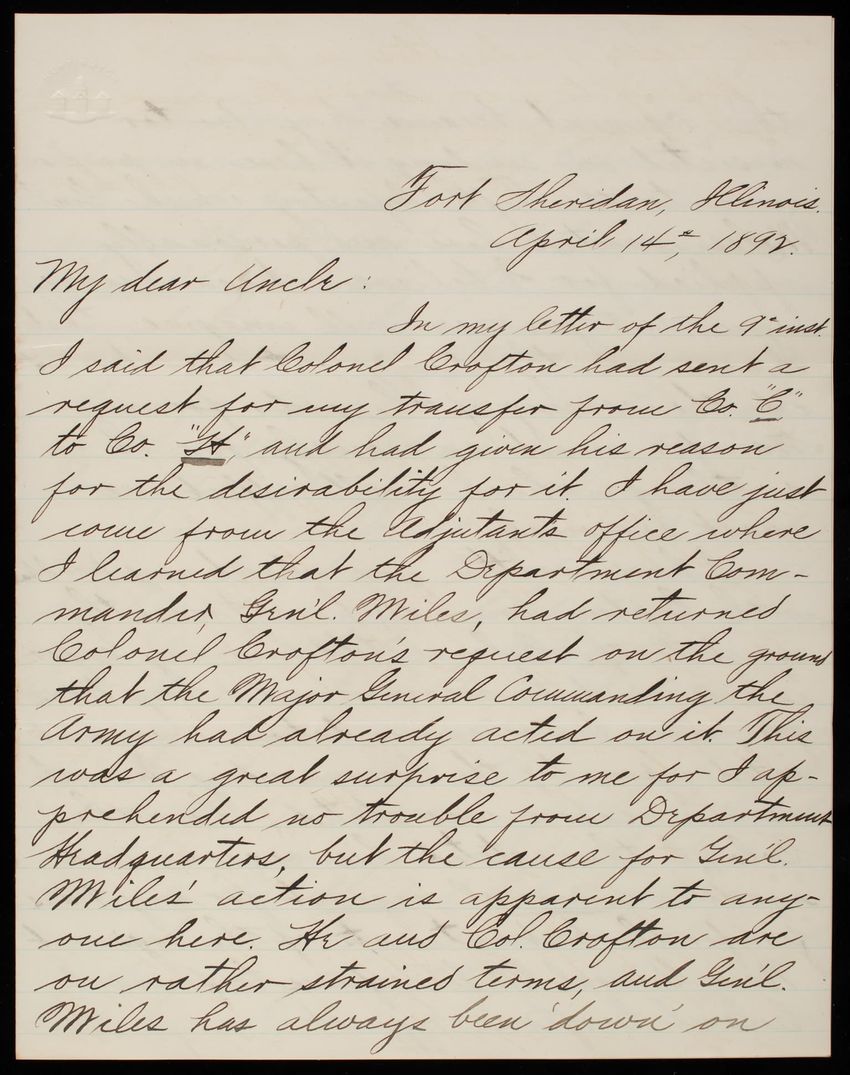 Fort Sheridan, Illinois.
April 14th, 1892.
My dear Uncle:
In my letter of the 9th inst.
I said that Colonel Crofton had sent a
request for my transfer from Co. "C"
to Co. "H," and had given his reason
for the desirability for it. I have just
come from the Adjutant's office where
I learned that the Department Com-
mander, Gen'l. Miles, had returned
Colonel Crofton's request on the ground
that the Major General Commanding the
Army had already acted on it. This
was a great surprise to me for I ap-
prehended no trouble from Department
Headquarters, but the cause for Gen'l.
Miles' action is apparent to any-
one here. He and Col. Crofton are
on rather strained terms, and Gen'l.
Miles has always been 'down' on